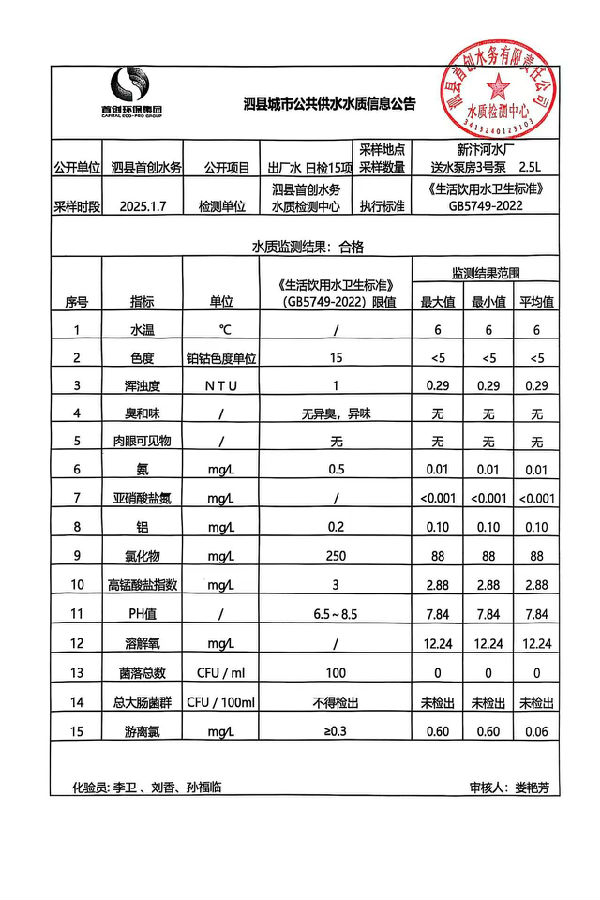 首创环保集团
CAPITAL ECO-PRO GROUP
泗县城市公共供水水质信息公告
泗县首创水务有限责任公司
水质检测中心
公开单位 泗县首创水务 公开项目 出厂水 日检15项 采样地点 采样数量 新汴河水厂 送水泵房3号泵 2.5L
采样时段 2025.1.7 检测单位 泗县首创水务 水质检测中心 执行标准 《生活饮用水卫生标准》 GB5749-2022
水质监测结果：合格
序号 指标 单位 《生活饮用水卫生标准》（GB5749-2022）限值 监测结果范围
最大值 最小值 平均值
1 水温 ℃ / 6 6 6
2 色度 铂钴色度单位 15 <5 <5 <5
3 浑浊度 NTU 1 0.29 0.29 0.29
4 臭和味 / 无异臭，异味 无 无 无
5 肉眼可见物 / 无 无 无 无
6 氨 mg/L 0.5 0.01 0.01 0.01
7 亚硝酸盐氮 mg/L / <0.001 <0.001 <0.001
8 铝 mg/L 0.2 0.10 0.10 0.10
9 氯化物 mg/L 250 88 88 88
10 高锰酸盐指数 mg/L 3 2.88 2.88 2.88
11 PH值 / 6.5~8.5 7.84 7.84 7.84
12 溶解氧 mg/L / 12.24 12.24 12.24
13 菌落总数 CFU / ml 100 0 0 0
14 总大肠菌群 CFU / 100ml 不得检出 未检出 未检出 未检出
15 游离氯 mg/L ≥0.3 0.60 0.60 0.06
化验员: 李卫 、刘香、孙福临 审核人：娄艳芳